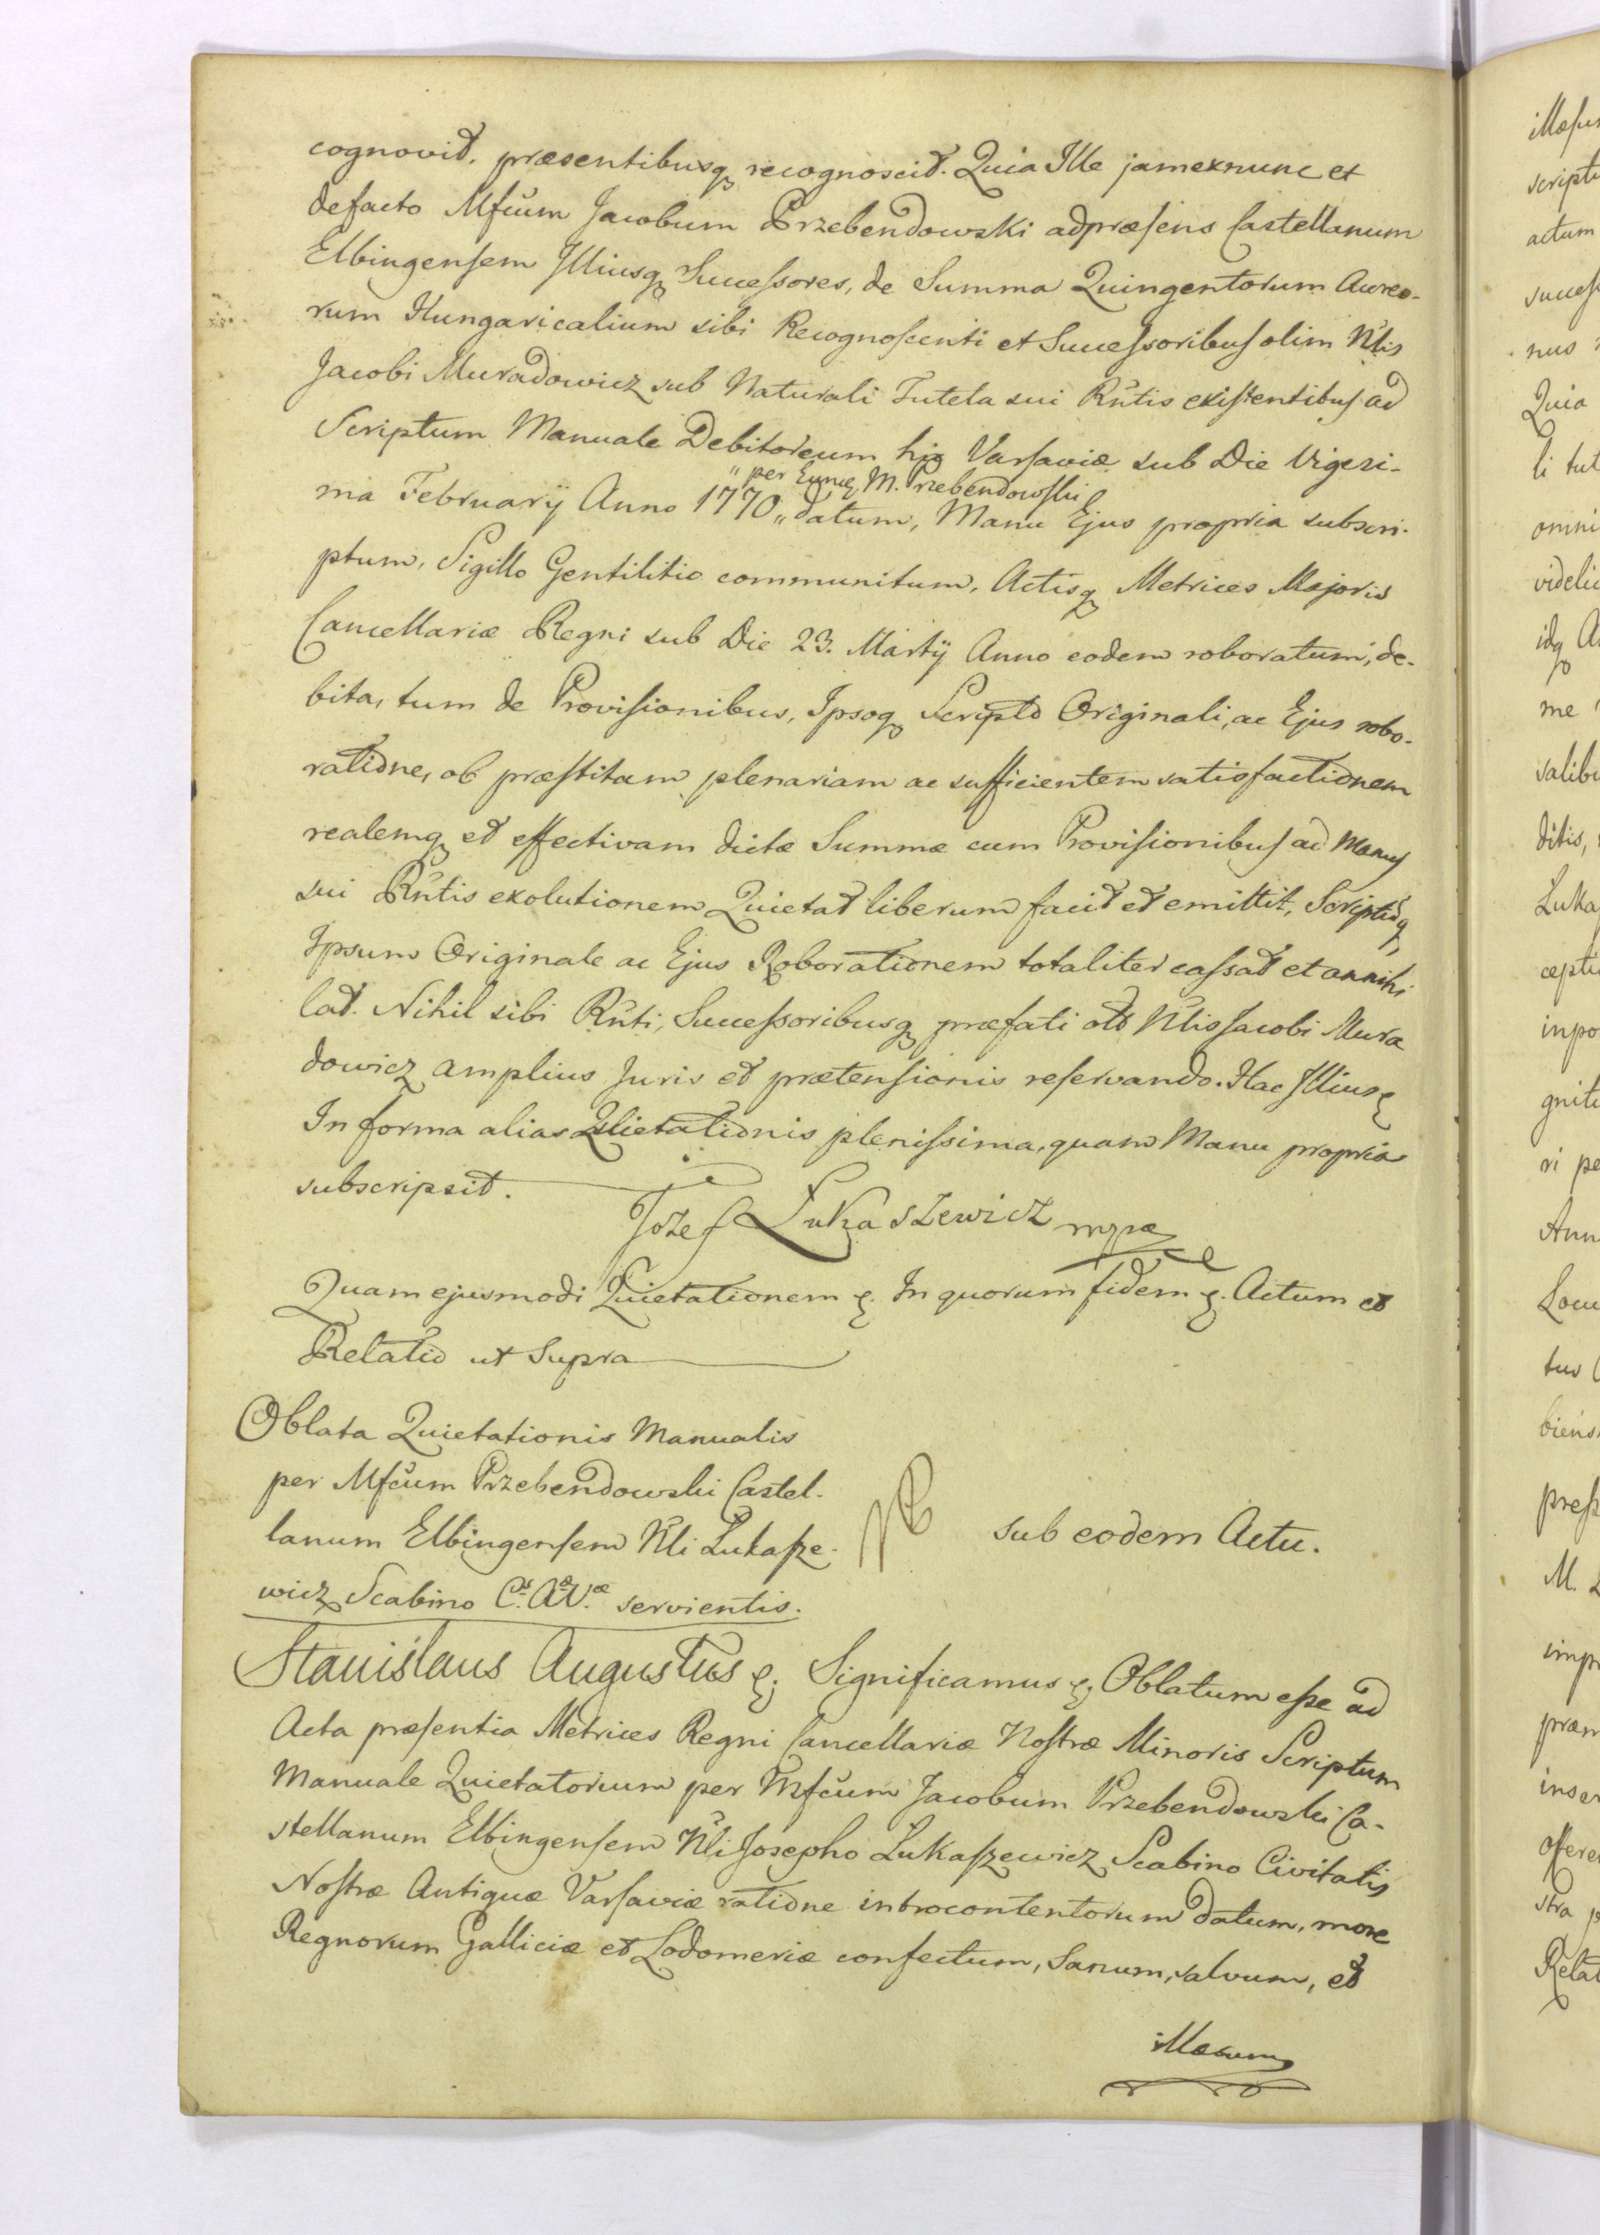 cognovit, præsentibusq recognoscit. Quia Ille jamexnunc et
defacto Mfcum Jacobum Przebendowski adpræsens Castellanum
Elbingensem Illiusq Successores, de Summa Quingentorum Aureo-
rum Hungaricalium sibi Recognoscenti et Successoribus olim Nlis
Jacobi Muradowicz sub Naturali Tutela sui Rntis existentibus ad
Scriptum Manuale Debitoreum hic Varsaviæ sub Die Vigesi-
" per Eund M. Przebendowski
ma February Anno 1770 " datum, Manu Ejus propria subscri-
ptum, Sigillo Gentilitio communitum, Actisq Metrices Majoris
Cancellariæ Regni sub Die 23. Martij Anno eodem roboratum, de-
bita, tum de Provisionibus, Ipsoq Scripto Originali, ac Ejus robo-
ratione, ob præstitam plenariam ac sufficientem satisfactionem
realemq et effectivam dictæ Summæ cum Provisionibus ad Manus
sui Rntis exolutionem Quietat liberum facit et emittit, Scriptuq
Ipsum Originale ac Ejus Roborationem totaliter cassat et annihi
lat. Nihil sibi Rnti, Successoribusq præfati olo Nlis Jacobi Mura
dowicz amplius Juris et prætensionis reservando. Hac Illius
In forma alias Quietationis plenissima, quam Manu propria
subscripsit.
Jozef Łukaszewicz mpæ
Quam ejusmodi Quietationem &. In quorum fidem &. Actum et
Relatio ut Supra
Oblata Quietationis Manualis
per Mfcum Przebendowski Castel-
lanum Elbingensem Nli Lukasze-
wicz Scabino C.s A.æ V.æ servientis.
sub eodem Actu.
Stanislaus Augustus &; Significamus &; Oblatum esse ad
Acta præsentia Metrices Regni Cancellariæ Nostræ Minoris Scriptum
Manuale Quietatorium per Mfcum Jacobum Przebendowski Ca-
stellanum Elbingensem Nli Josepho Lukaszewicz Scabino Civitatis
Nostræ Antiquæ Varsaviæ ratione introcontentorum datum, more
Regnorum Galliciæ et Lodomeriæ confectum, Sanum, salvum, et
illæsum